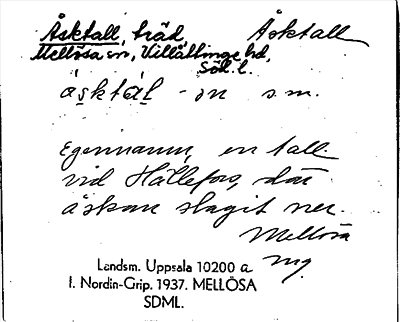 Åsktall, träd Åsktall
Mellösa sn, Villåttinge hd,
Söd. l.
å̱sktá̱l - ən s.m.
Egennamn, en tall
vid Hälleforss, där
åskan slagit ner.
Mellösa
mg.
Landsm. Uppsala 10200 a
I. Nordin-Grip. 1937. MELLÖSA
SDML.